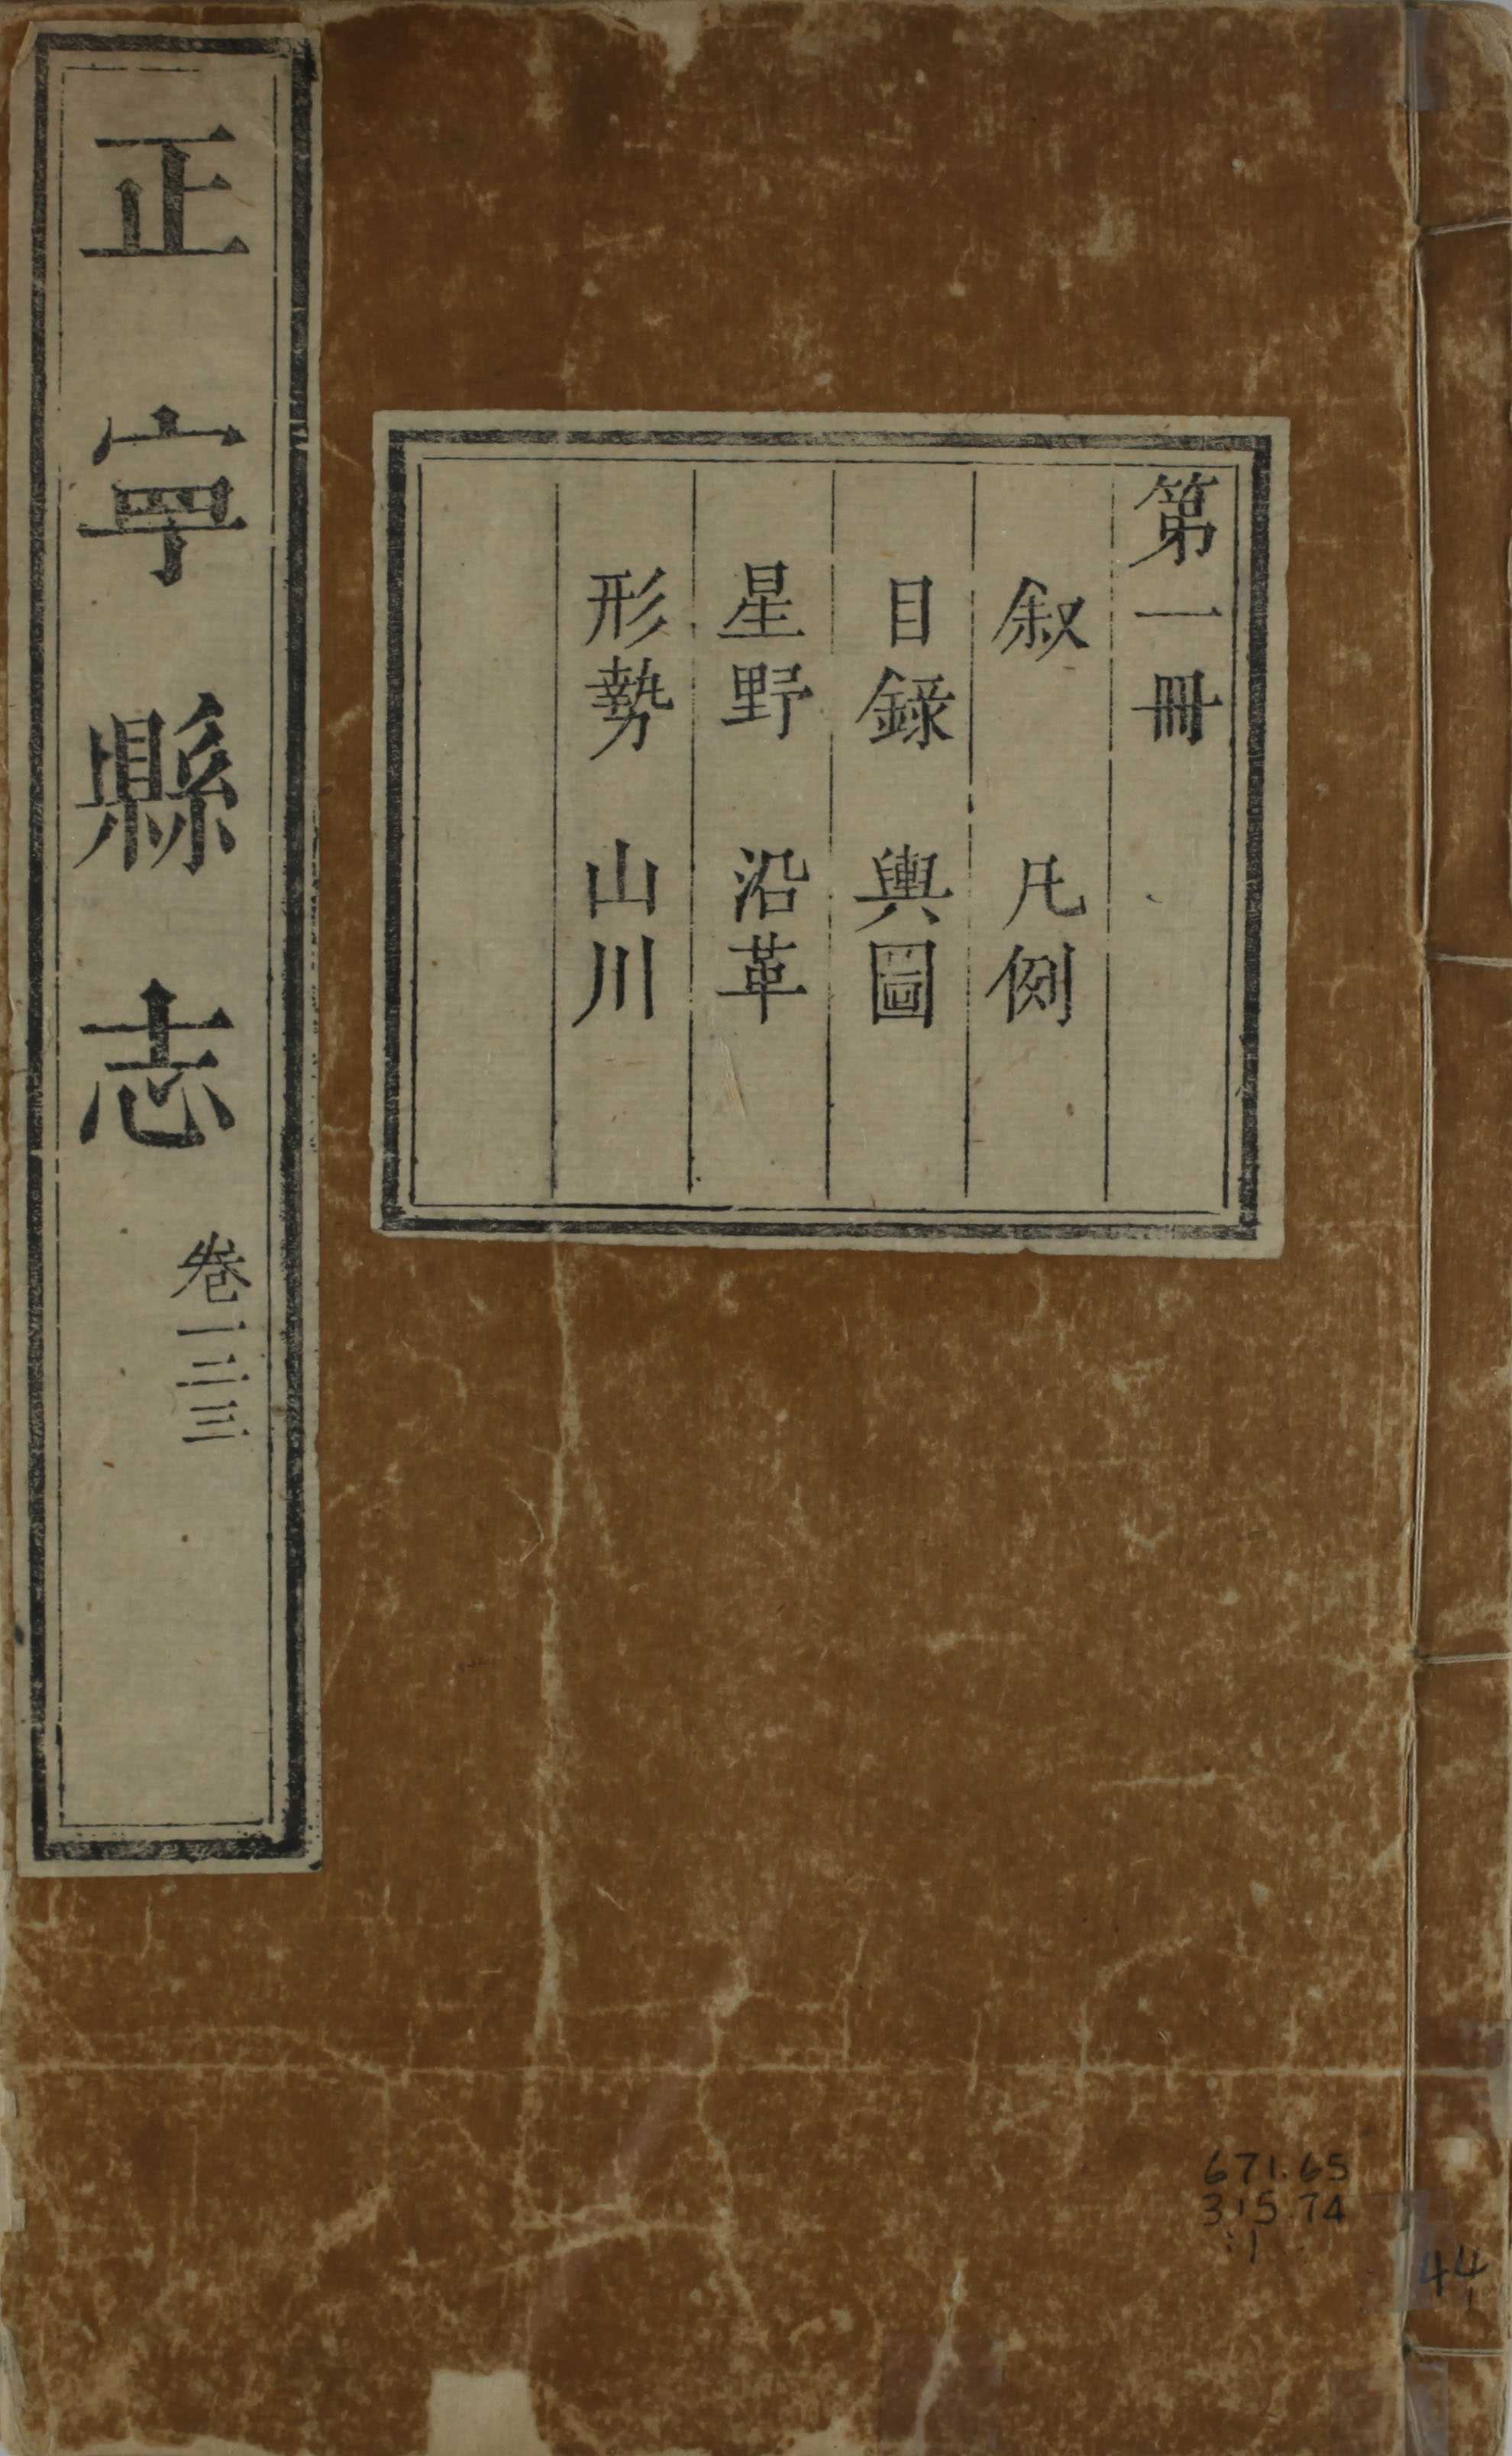 第一冊
叙　凡例
目錄　輿圖
星野　沿革
形勢　山川
正寜縣志 卷一二三
671.65
315.74
:1
44
1